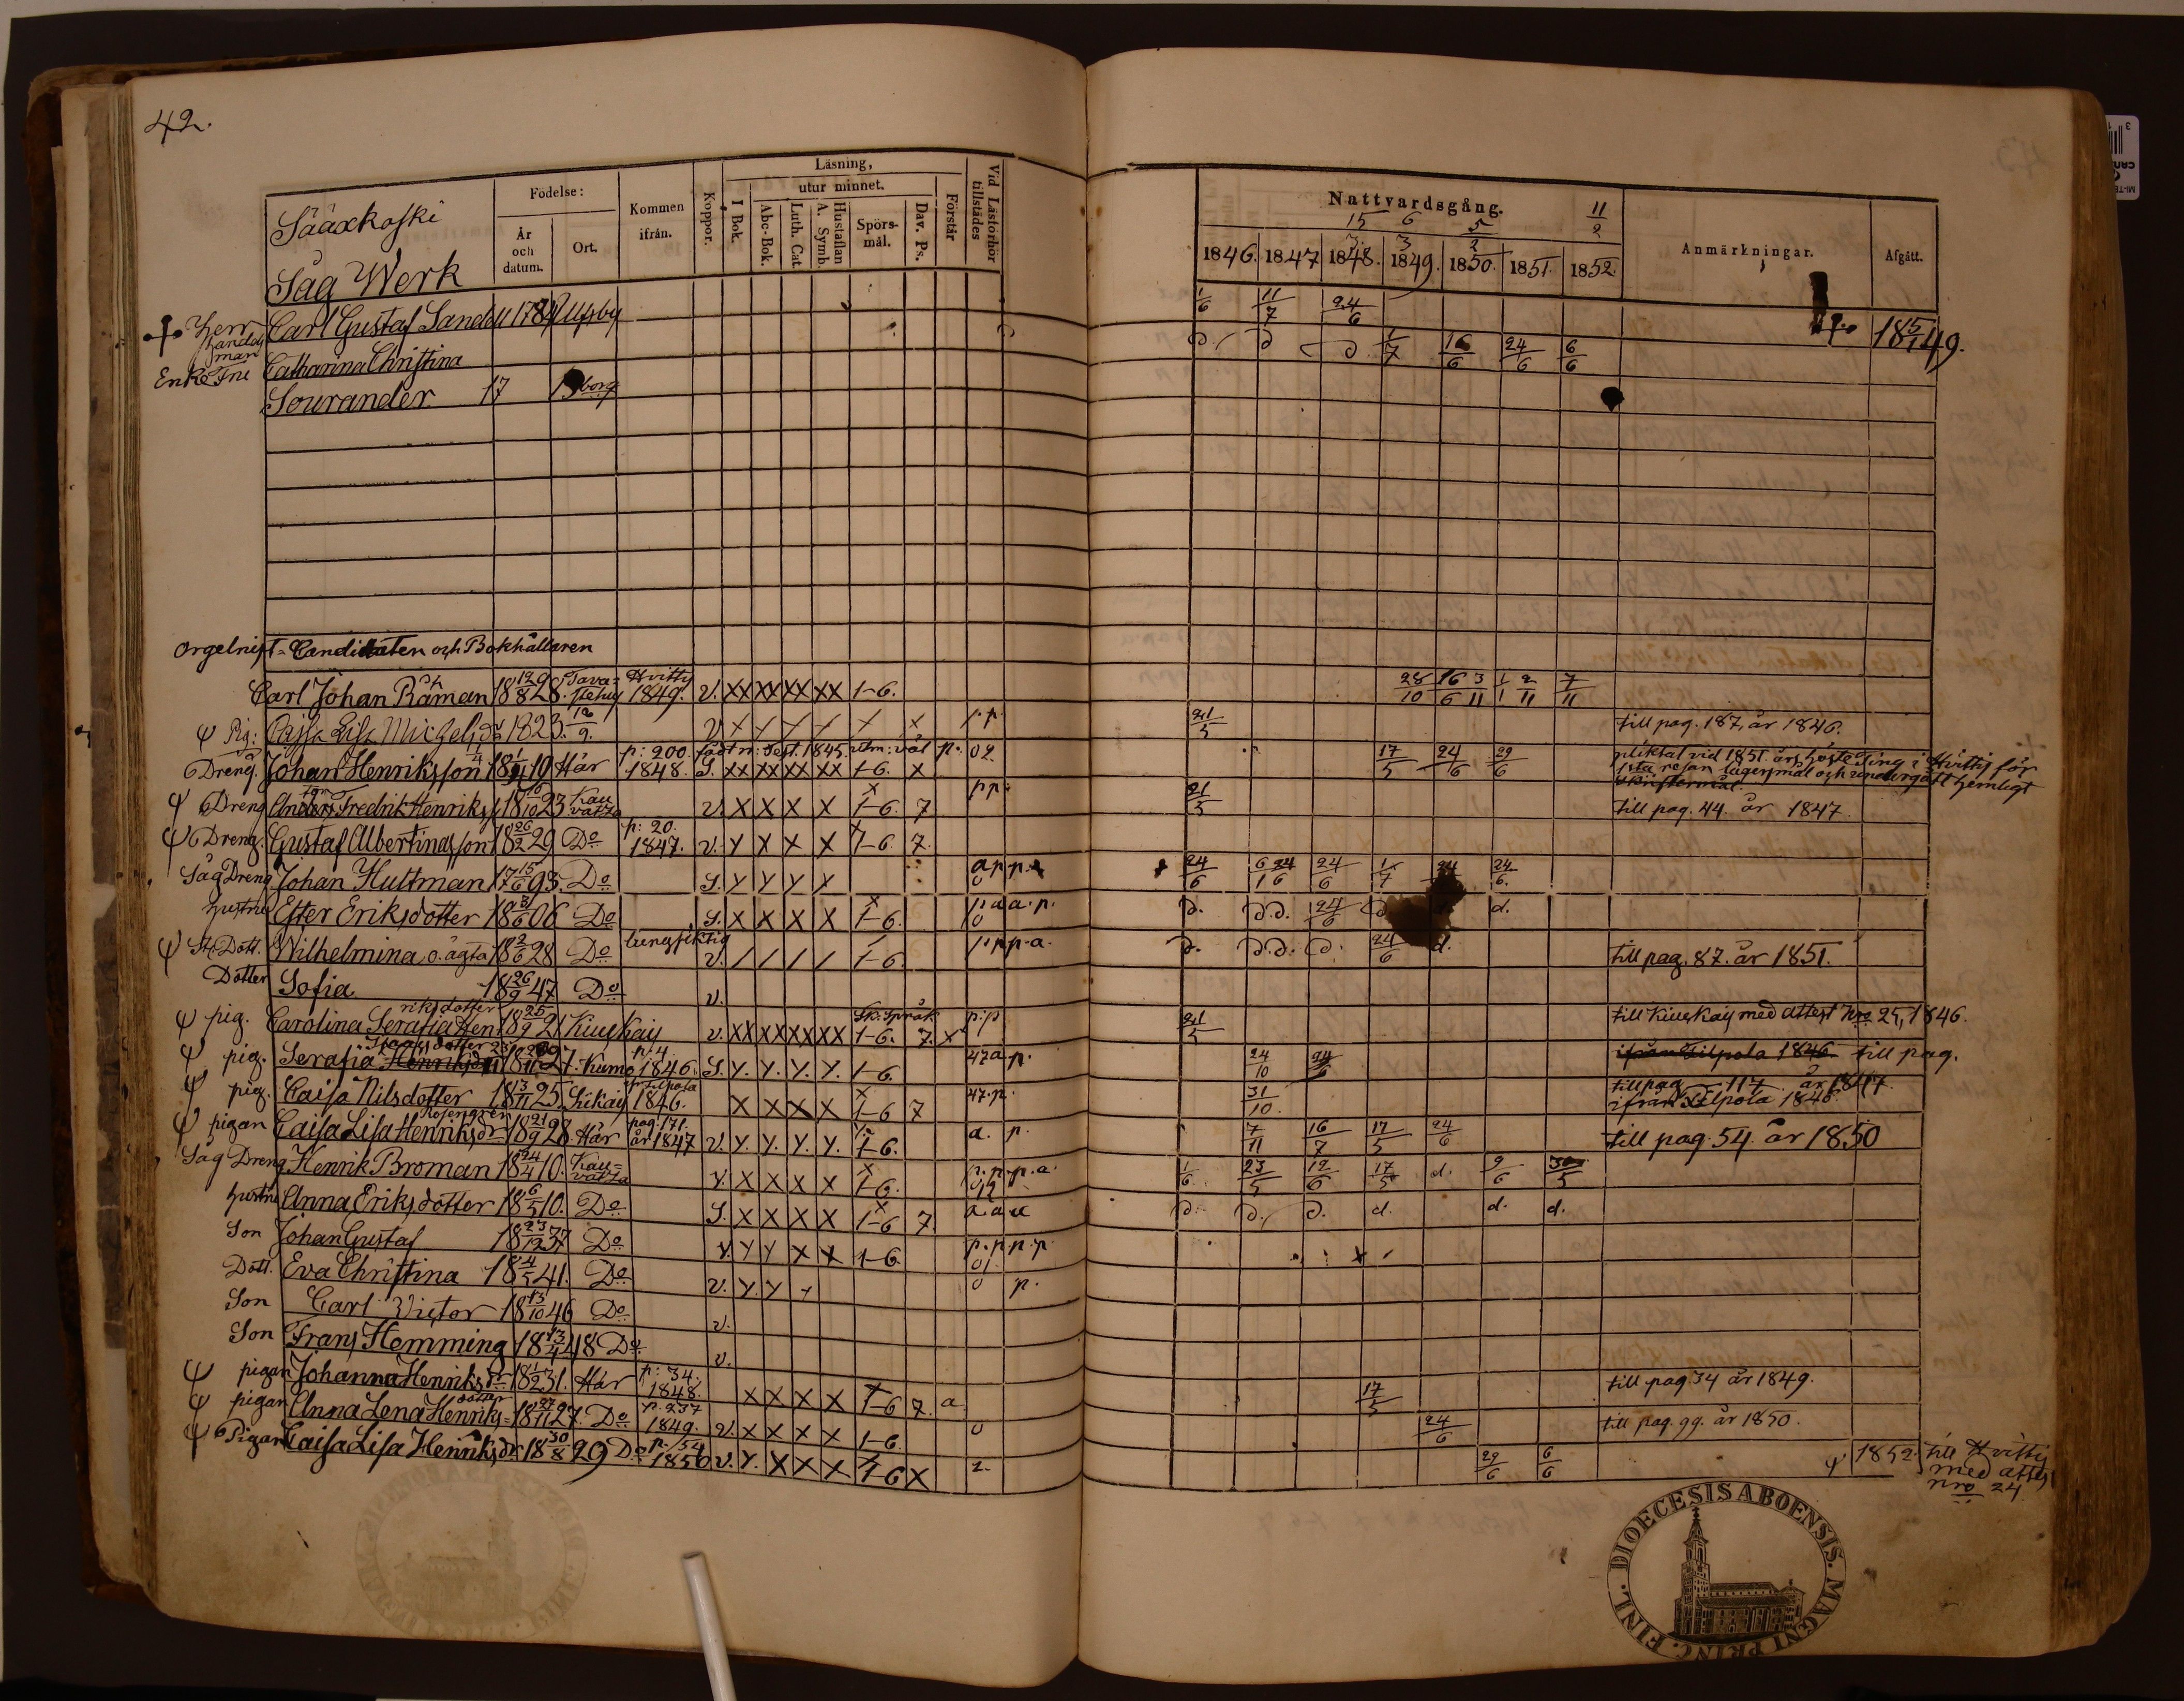 42.
Sääxkoski
Såg Werk
Födelse:
År och datum.
Ort.
Kommen ifrån.
Koppor.
Läsning,
utur minnet.
I Bok.
Abc-Bok.
Luth. Cat.
A. Symb. Hustaflan
Spörsmål.
Dav. Ps.
Förstår
Vid Läsförhör tillstädes
Nattvardsgång.
1846. 1847 1848. 1849. 1850. 1851. 1852.
Anmärkningar.
Afgått.
Herr Handelsman Carl Gustaf Sandell 1/6 11/7 24/6 1849.
Enke Fru Catharina Christina 1/7 16/6 24/6 6/6
Sourander 17
Orgelnist-Candidaten och Bokhållaren
Carl Johan Råman 1828. Tavastehus Hvittis 1849. v. xx xx xx xx 1-6. 28/10 16/6 3/11 1/1 2/11 7/11
Pig: Cajsa Lisa Michelsdr 1823. v p.p. 21/5 till pag. 187, år 1846.
p: 200. 02.
Dreng. Johan Henriksson 1819 Här 1848. S. xx xx xx xx 1-6. x 17/5 24/6 29/6
pliktat vid 1851. års höste Ting i Hvittis för
1sta resan lägersmål och undergått hemligt
skriftermål.
Dreng Anders Fredrik Henriks 1823 Kauvatza v. x x x x 1-6 7 pp. 21/5 till pag. 44. år 1847
Dreng. Gustaf Albertinasson 1829 Do p: 20. 1847. v. y x x x 1-6 7.
Såg Dreng Johan Hultman 1795. Do S. y y y x 24/6 24/6 24/6 1/7 24/6.
Hustru Ester Eriksdotter 1806 Do S. x x x x 1-6. d. d.d. 24/6 d.
St. Dott. Wilhelmina o. ägta 1828 Do lungsiktig v. 1-6 p.p.p.a. d. d.d. d. 24/6 d. till pag. 87. år 1851.
Dotter Sofia 1847 Do v.
pig. Carolina Serafia Henriksdotter 1821 Kiuckais v. xx xx xx xx 1-6. 7. x p.p 21/5 till Kiuckais med attest Nro 25, 1846.
pig. Serafia Henriksdr Isaacsdotter 1827. Kumo p: 4 1846. S. y. y. y. y. 1-6. 24/10 ifrån Lilpola 1846 till pag.
pig. Caisa Nilsdotter 1825 1846. x x x x 1-6 7 47.p. 31/10. till pag 117. år 1847.
ifrån Lilpola 1846.
pigan Caisa Lisa Henriksdr Rosengren 1828 Här pag. 171. år 1847 v. y. y. y. y. 1-6. a. p. 7/11 16/7 17/5 24/6 till pag. 54. år 1850
Såg Dreng Henrik Broman 1810. Kauvatza v. x x x x 1-6. p.p.p.a. 1/6 23/5 12/6 17/5 d. 9/6 30/5
Hustru Anna Eriksdotter 1810. Do S. x x x x 1-6 7. d. d. d. d. d. d.
Son Johan Gustaf 1837 Do v. y y x x 1-6. p.p.p.p
Dott. Eva Christina 1841. Do v. y. y p.
Son Carl Victor 1846 Do v.
Son Frans Hemming 1848 Do v.
pigan Johanna Henriksdr 1831. Här p: 34. 1848. x x x x 1-6 7. a 17/5 till pag. 34 år 1849.
pigan Anna Lena Henriksdotter 1827. Do p. 237 1849. v. x x x x 1-6. 24/6 till pag. 99. år 1850.
Pigan Caisa Lisa Henriksdr 1829 Do p. 54 1850 v. y. x x x 1-6 x 29/6 6/6 1852. till Hvittis
med attest
nro 24
FINL. DIOECESIS ABOENSIS. MAGNI PRINC.